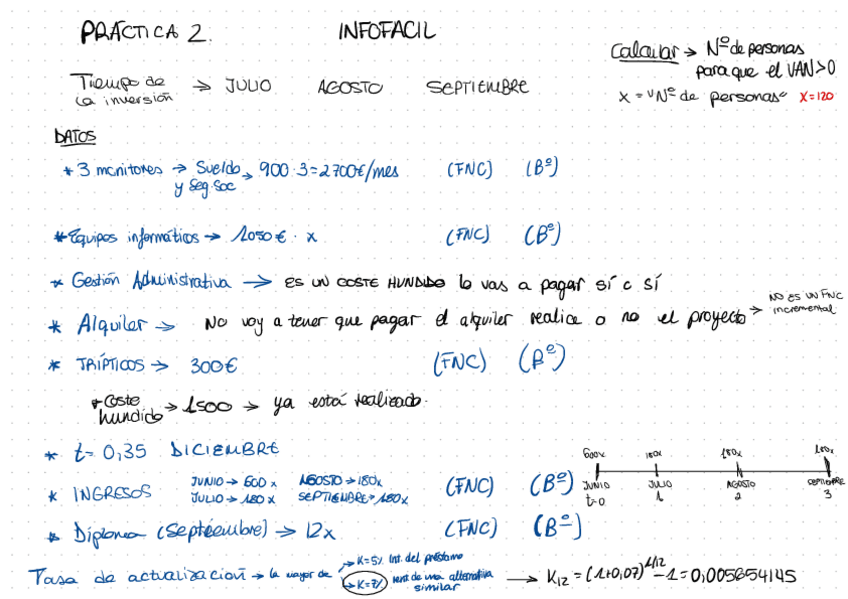 PRÁCTICA 2. INFOFACIL
Calcular → Nº de personas
para que el VAN>0
x = "Nº de personas" x=120
Tiempo de
la inversión → JULIO AGOSTO SEPTIEMBRE
DATOS
* 3 monitores → Sueldo
y Seg. Soc → 900·3=2700€/mes (FNC) (Bº)
* Equipos informáticos → 1050€ · x (FNC) (Bº)
* Gestión Administrativa → ES UN COSTE HUNDIDO lo vas a pagar sí o sí
* Alquiler → No voy a tener que pagar el alquiler realice o no el proyecto → NO ES UN FNC
incremental
* TRÍPTICOS → 300€ (FNC) (Bº)
* Coste
hundido → 1500 → ya está realizado.
* t= 0,35 DICIEMBRE
* INGRESOS JUNIO → 600x AGOSTO → 180x
JULIO → 180x SEPTIEMBRE → 180x (FNC) (Bº)
600x 180x 180x 180x
JUNIO JULIO AGOSTO SEPTIEMBRE
t=0 1 2 3
* Diploma (Septiembre) → 12x (FNC) (Bº)
Tasa de actualización → la mayor de → K=5% Int. del préstamo
→ K=7% rent de una alternativa
similar
→ K12 = (1+0,07)^1/12 - 1 = 0,005654145